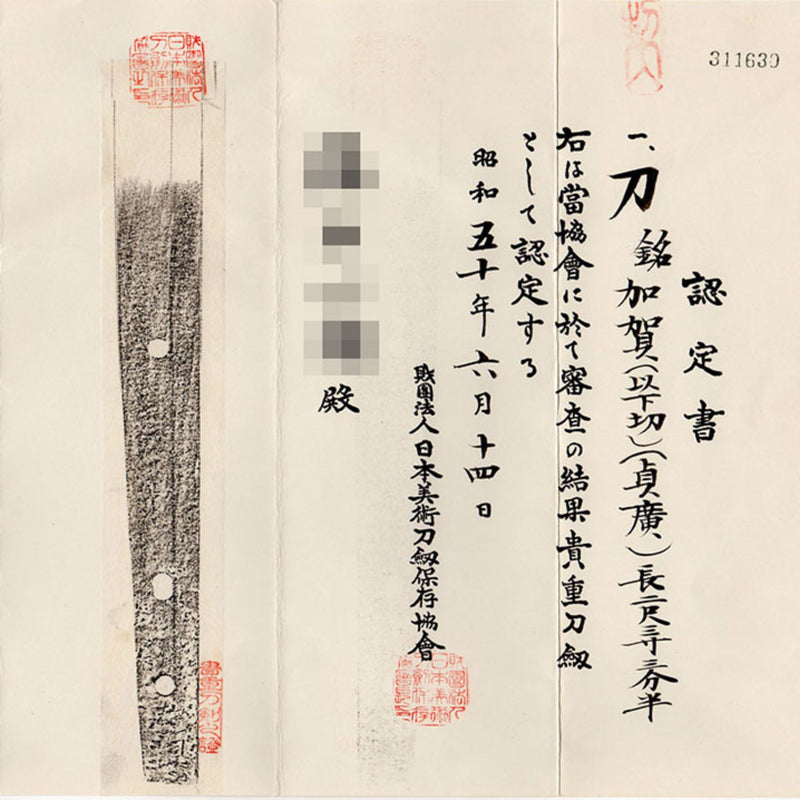 311630
認定書
一、刀 銘 加賀(以下切)(貞廣) 長 尺 寸 分半
右は當協會に於て審査の結果貴重刀劔
として認定する
昭和五十年六月十四日
財團法人日本美術刀劔保存協會
殿
貴重刀剣之證